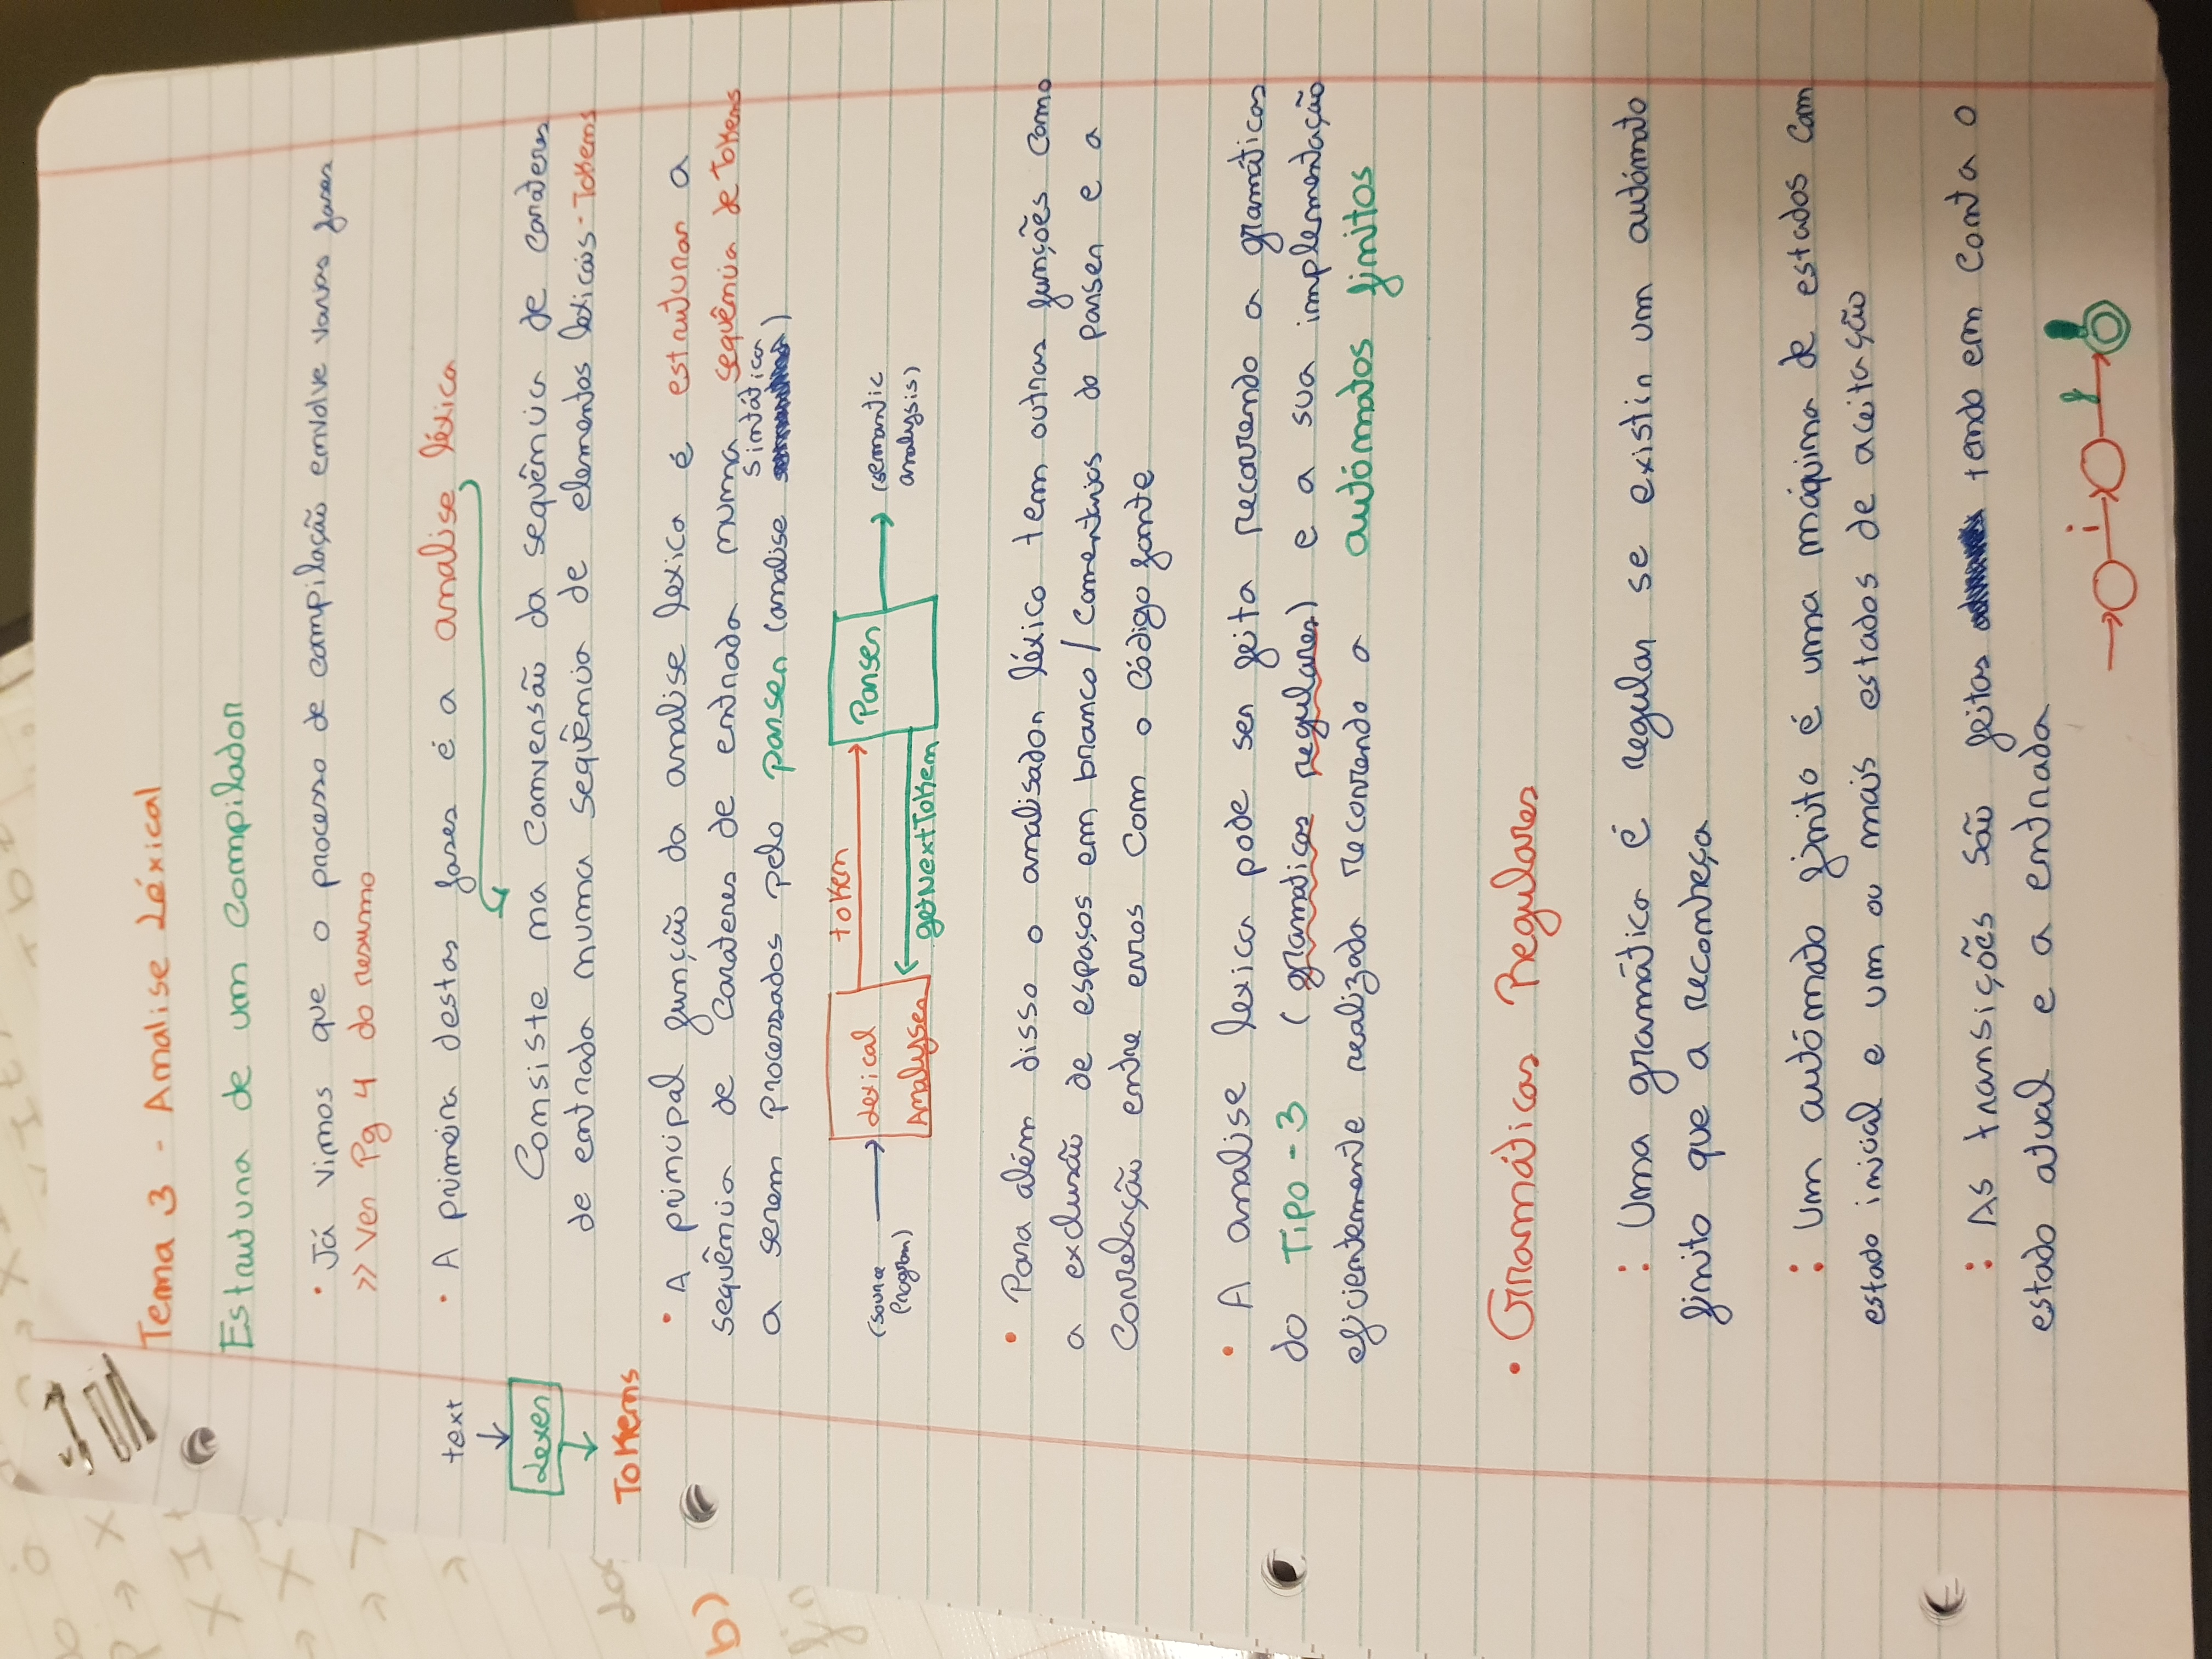 Tema 3 - Analise Léxical
Estrutura de um compilador
• Já vimos que o processo de compilação envolve varias fases
>> Ver Pg 4 do resumo
• A primeira destas fases é a analise léxica
text
Lexer
Tokens
Consiste na conversão da sequência de carateres
de entrada numa sequência de elementos lexicais - Tokens
• A principal função da analise lexica é estruturar a
sequência de carateres de entrada numa sequência de Tokens
a serem processados pelo parser (analise sintática)
(source
Program)
Lexical
Analyser
token
getNextToken
Parser
(semantic
analysis)
• Para além disso o analisador léxico tem outras funções como
a exclusão de espaços em branco/comentarios do parser e a
correlação entre erros com o código fonte
• A analise lexica pode ser feita recorrendo a gramáticas
do Tipo - 3 (gramaticas regulares) e a sua implementação
eficientemente realizada recorrendo a autómatos finitos
• Gramáticas Regulares
: Uma gramática é regular se existir um autómato
finito que a reconheça
: Um autómato finito é uma máquina de estados com
estado inicial e um ou mais estados de aceitação
: As transições são feitas tendo em conta o
estado atual e a entrada
i f